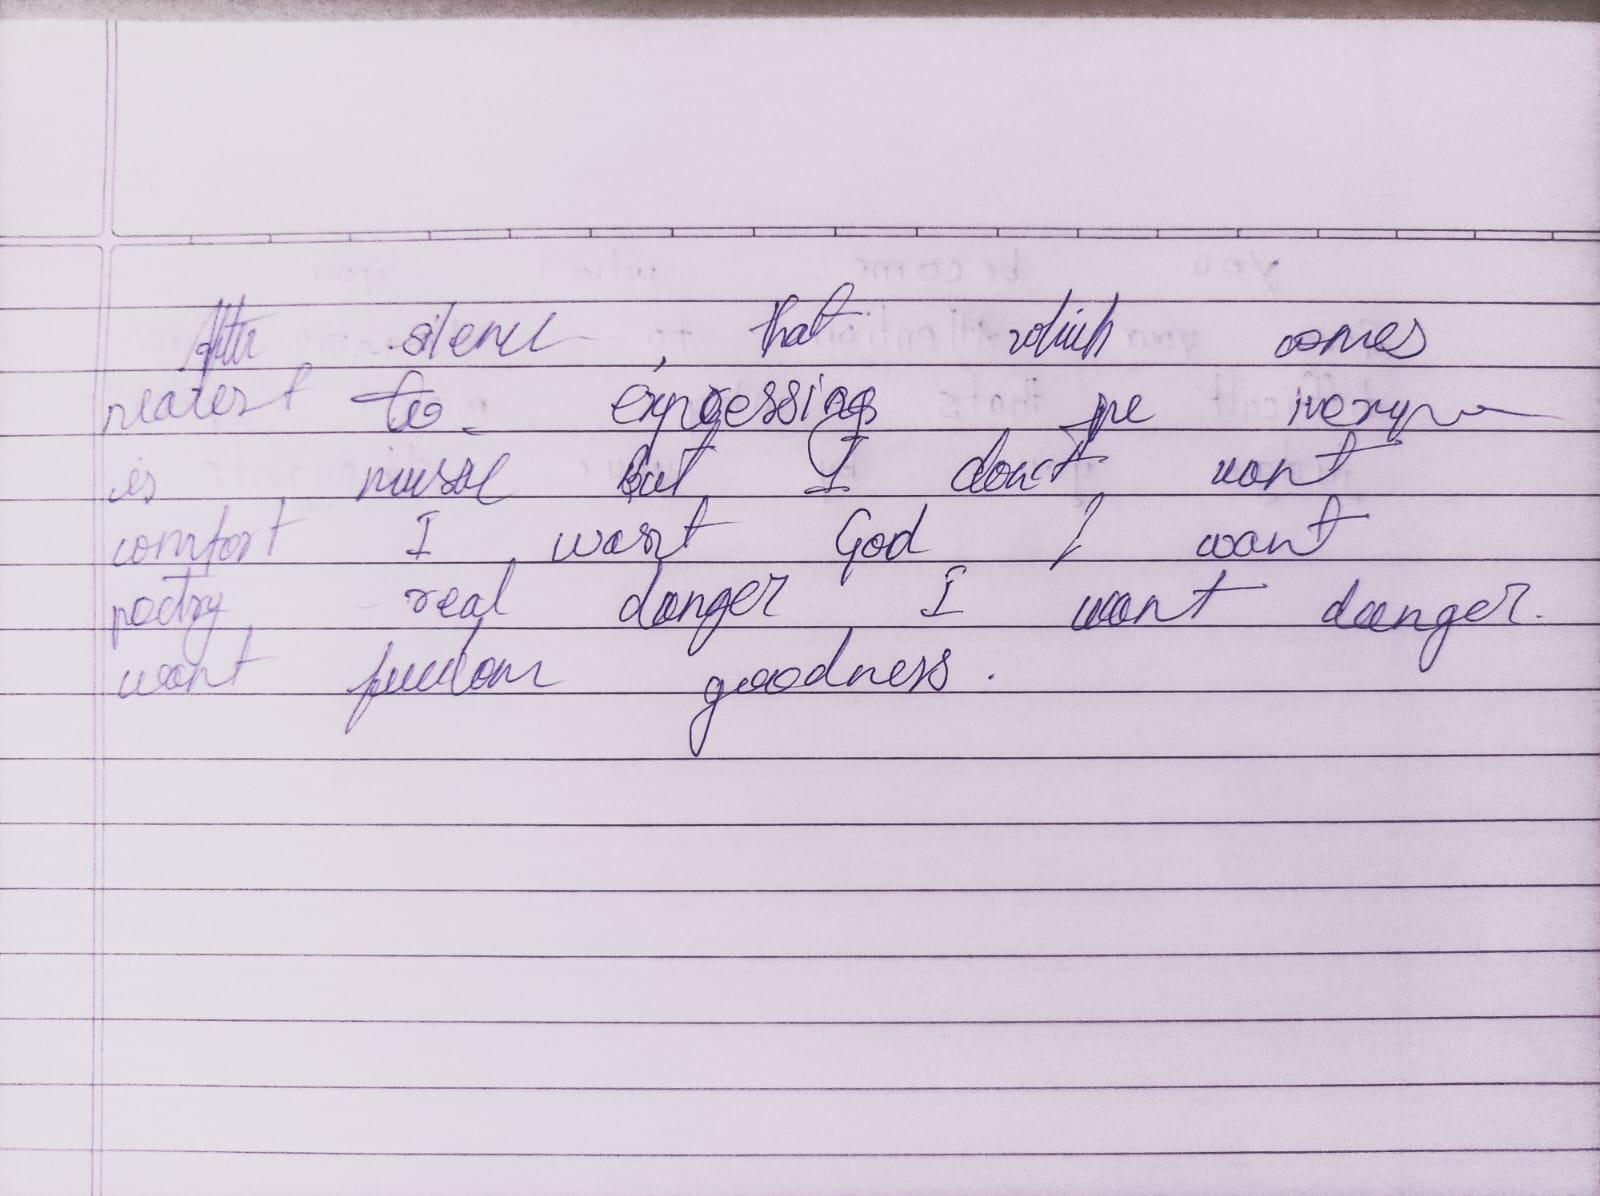 After silence, that which comes
nearest to expressing the
is music but I don't want
comfort I want God I want
poetry real danger I want danger.
want freedom goodness.